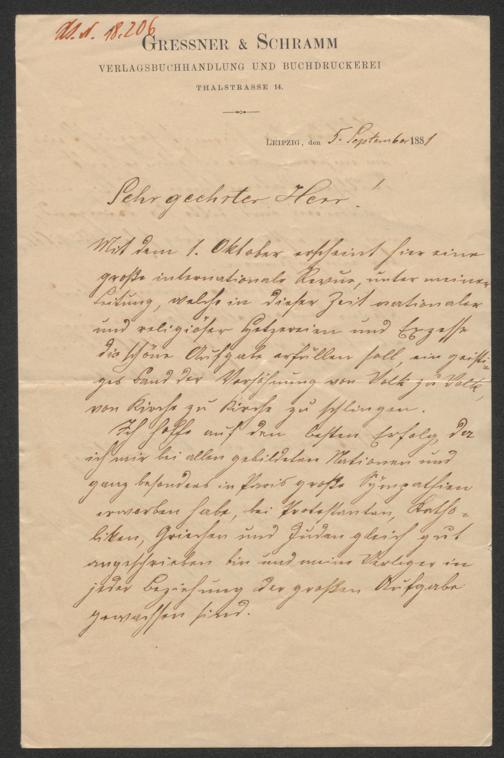 18.206
GRESSNER & SCHRAMM
VERLAGSBUCHHANDLUNG UND BUCHDRUCKEREI
THALSTRASSE 14.
LEIPZIG, den 5. September 1881
Sehr geehrter Herr!
Mit dem 1. Oktober erscheint hier eine
große internationale Revue, unter meiner
Leitung, welche in dieser Zeit nationaler
und religiöser Hetzereien und Exzesse
die schöne Aufgabe erfüllen soll, ein geisti-
ges Band der Versöhnung von Volk zu Volk,
von Kirche zu Kirche zu schlingen.
Ich hoffe auf den besten Erfolg, da
ich mir bei allen gebildeten Nationen und
ganz besonders in Paris große Sympathien
erworben habe, bei Protestanten, Katho-
liken, Griechen und Juden gleich gut
angeschrieben bin und meine Verleger in
jeder Beziehung der großen Aufgabe
gewachsen sind.